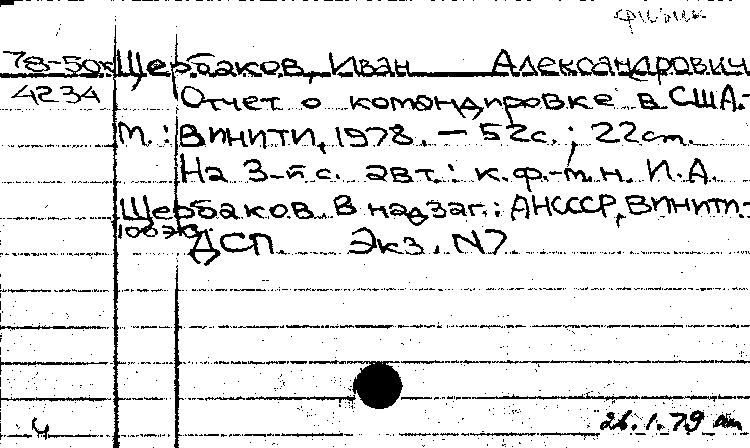 физик
78-50к Щербаков, Иван Александрович
4234 Отчет о командировке в США.-
М.: ВИНИТИ, 1978. — 52с.; 22см.
На 3-й с. авт.: к.ф.-м.н. И.А.
Щербаков. В надзаг.: АНСССР, ВИНИТИ.-
100экз. ДСП. Экз. N7.
ч 26.1.79